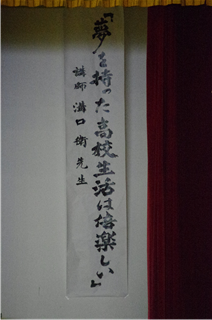 「夢を持った高校生活は倍楽しい」
講師 溝口 衛 先生